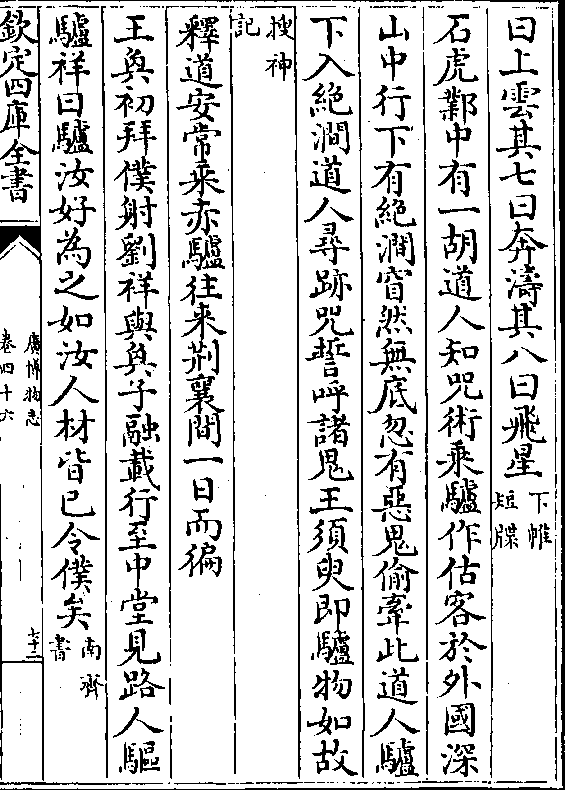 曰上雲其七曰奔濤其八曰飛星下帷短牒
石虎鄴中有一胡道人知咒術乘驢作估客於外國深
山中行下有絶澗窅然無底忽有惡鬼偷牽此道人驢
下入絶澗道人尋跡咒誓呼諸鬼王須臾即驢物如故
搜神記
釋道安常乘赤驢往来荆襄間一日而徧
王奐初拜僕射劉祥與奐子融載行至中堂見路人驅
驢祥曰驢汝好為之如汝人材皆已令僕矣南齊書
欽定四庫全書
廣博物志
卷四十六
七十二